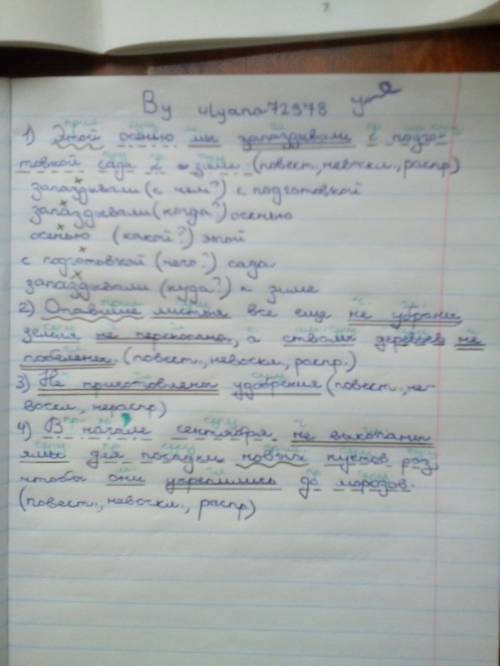 By ulyana72978
1) Этой осенью мы запаздывали с подго-
товкой сада к зиме. (повест., невоскл., распр)
запаздывали (с чем?) с подготовкой
запаздывали (когда?) осенью
осенью (какой?) этой
с подготовкой (чего?) сада
запаздывали (куда?) к зиме
2) Опавшие листья все еще не убраны
земля не перекопана, а стволы деревьев не
побелены. (повест., невоскл., распр.)
3) Не приготовлены удобрения (повест., не-
воскл., нераспр)
4) В начале сентября не выкопаны
ямы для посадки новых кустов роз,
чтобы они укрепились до морозов.
(повест., невоскл., распр)